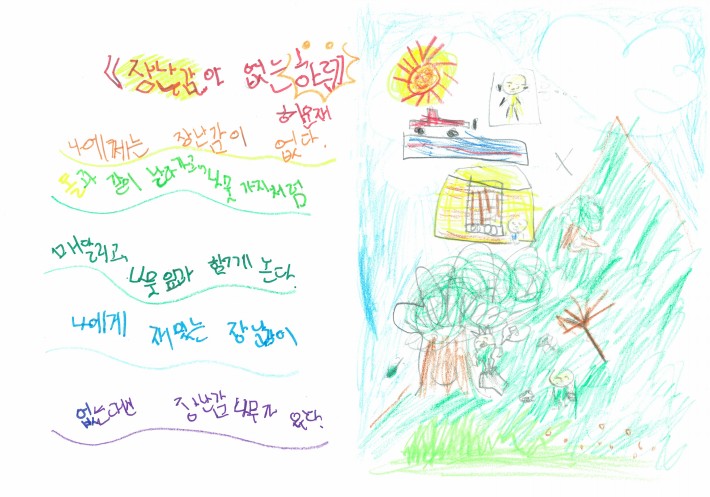 《장난감이 없는 하루》
허윤재
나에게는 장난감이 없다.
돌과 같이 날라가고 나뭇가지처럼
매달리고, 나뭇잎과 함께 논다.
나에게 재밌는 장난감이
없는대신 장난감 나무가 있다.